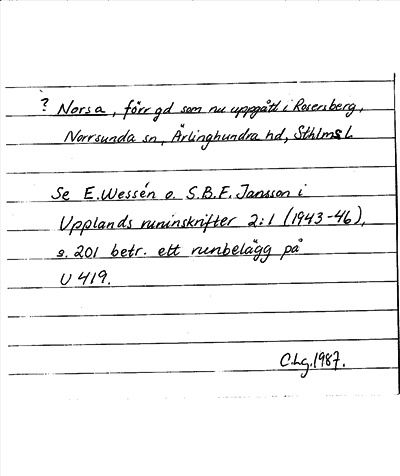 ? Norsa, förr gd som nu uppgått i Rosersberg,
Norrsunda sn, Ärlinghundra hd, Sthlms L
Se E. Wessén o. S.B.F. Jansson i
Upplands runinskrifter 2:1 (1943-46),
s. 201 betr. ett runbelägg på
U 419.
C.Lg. 1987.